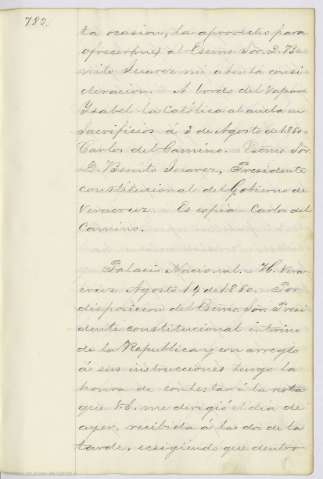 782.
ta ocasion, la aprovecho para
ofrecer al Escmo Sor. D. Be-
nito Juarez mi atenta consi-
deracion. A bordo del Vapor
Ysabel la Católica al ancla en
Sacrificios á 3 de Agosto de 1860.
Carlos del Camino. Escmo Sor.
D. Benito Juarez, Presidente
constitucional del Gobierno de
Veracruz. Es copia Carlos del
Camino.
Palacio Nacional. H. Vera-
cruz Agosto 14 de 1860. Por
disposicion del Escmo Sor. Presi-
dente constitucional interino
de la Republica y con arreglo
á sus instrucciones tengo la
honra de contestar á la nota
que V.E. me dirigió el dia de
ayer, recibida á las dos de la
tarde, ecsigiendo que dentro